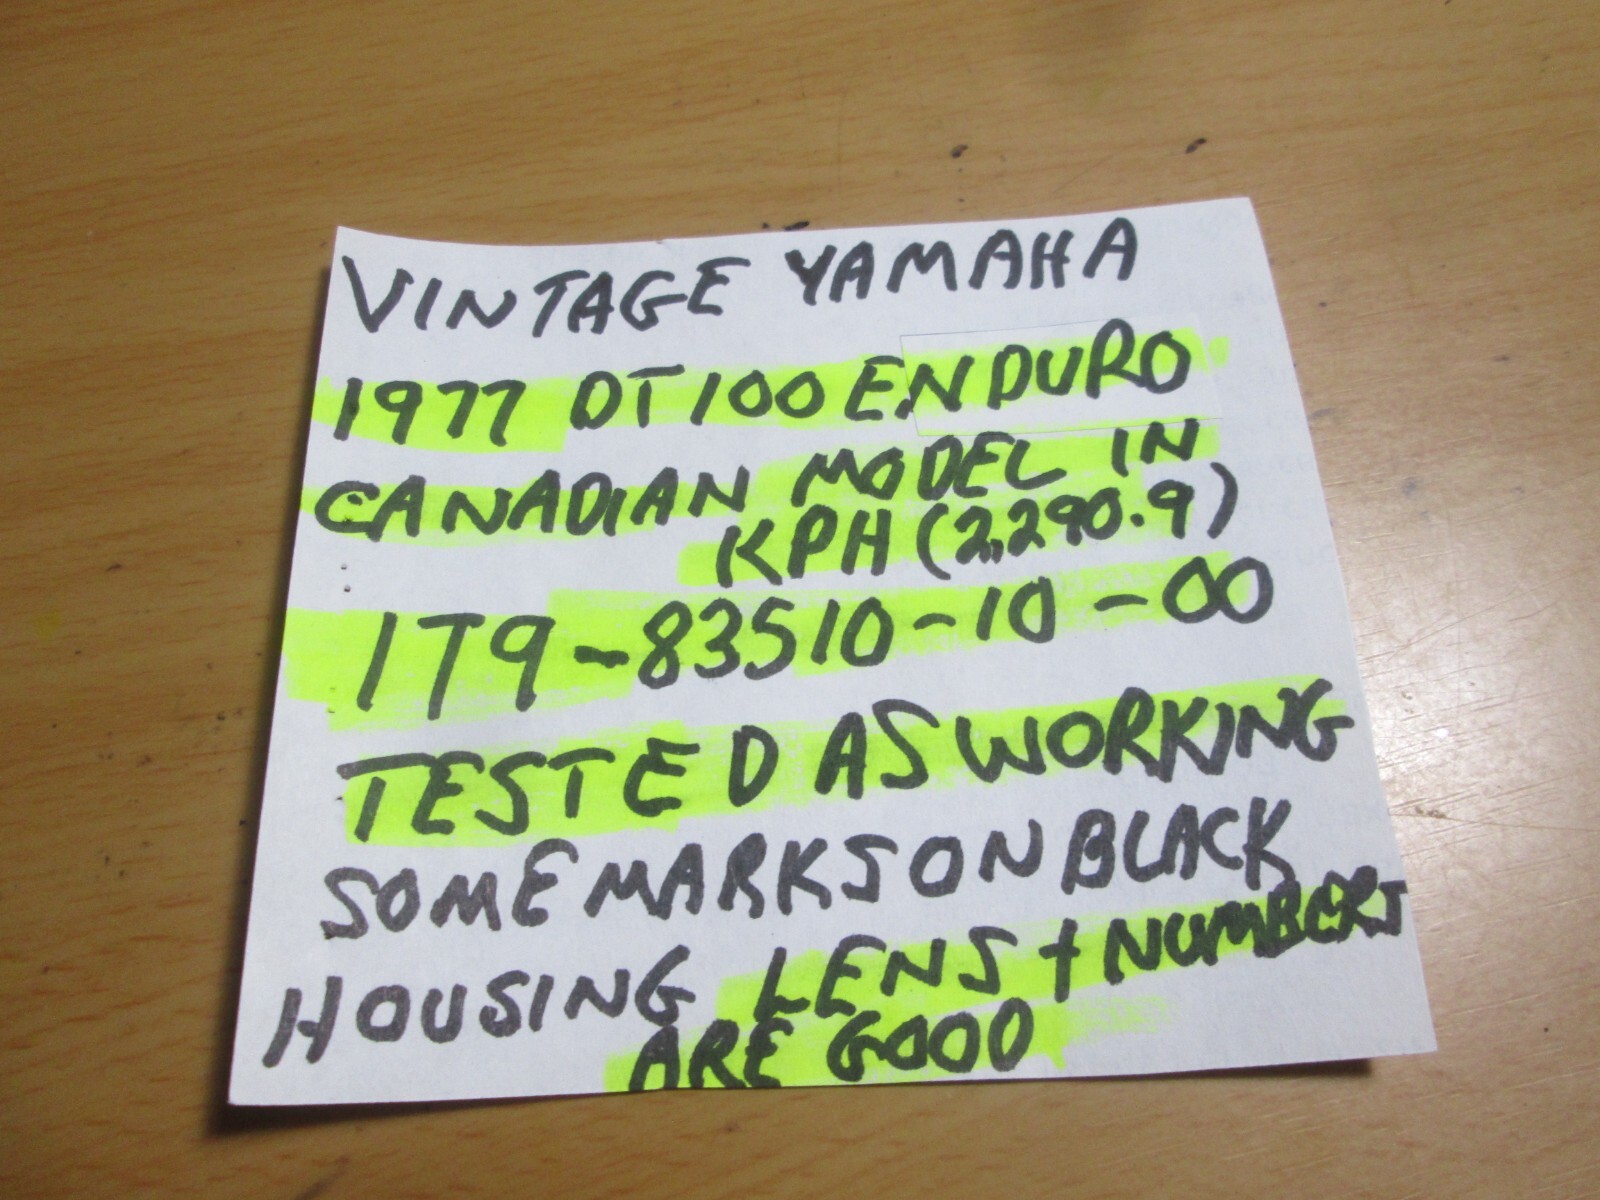 VINTAGE YAMAHA
1977 DT100 ENDURO
CANADIAN MODEL IN
KPH (2,290.9)
1T9-83510-10-00
TESTED AS WORKING
SOME MARKS ON BLACK
HOUSING LENS + NUMBERS
ARE GOOD